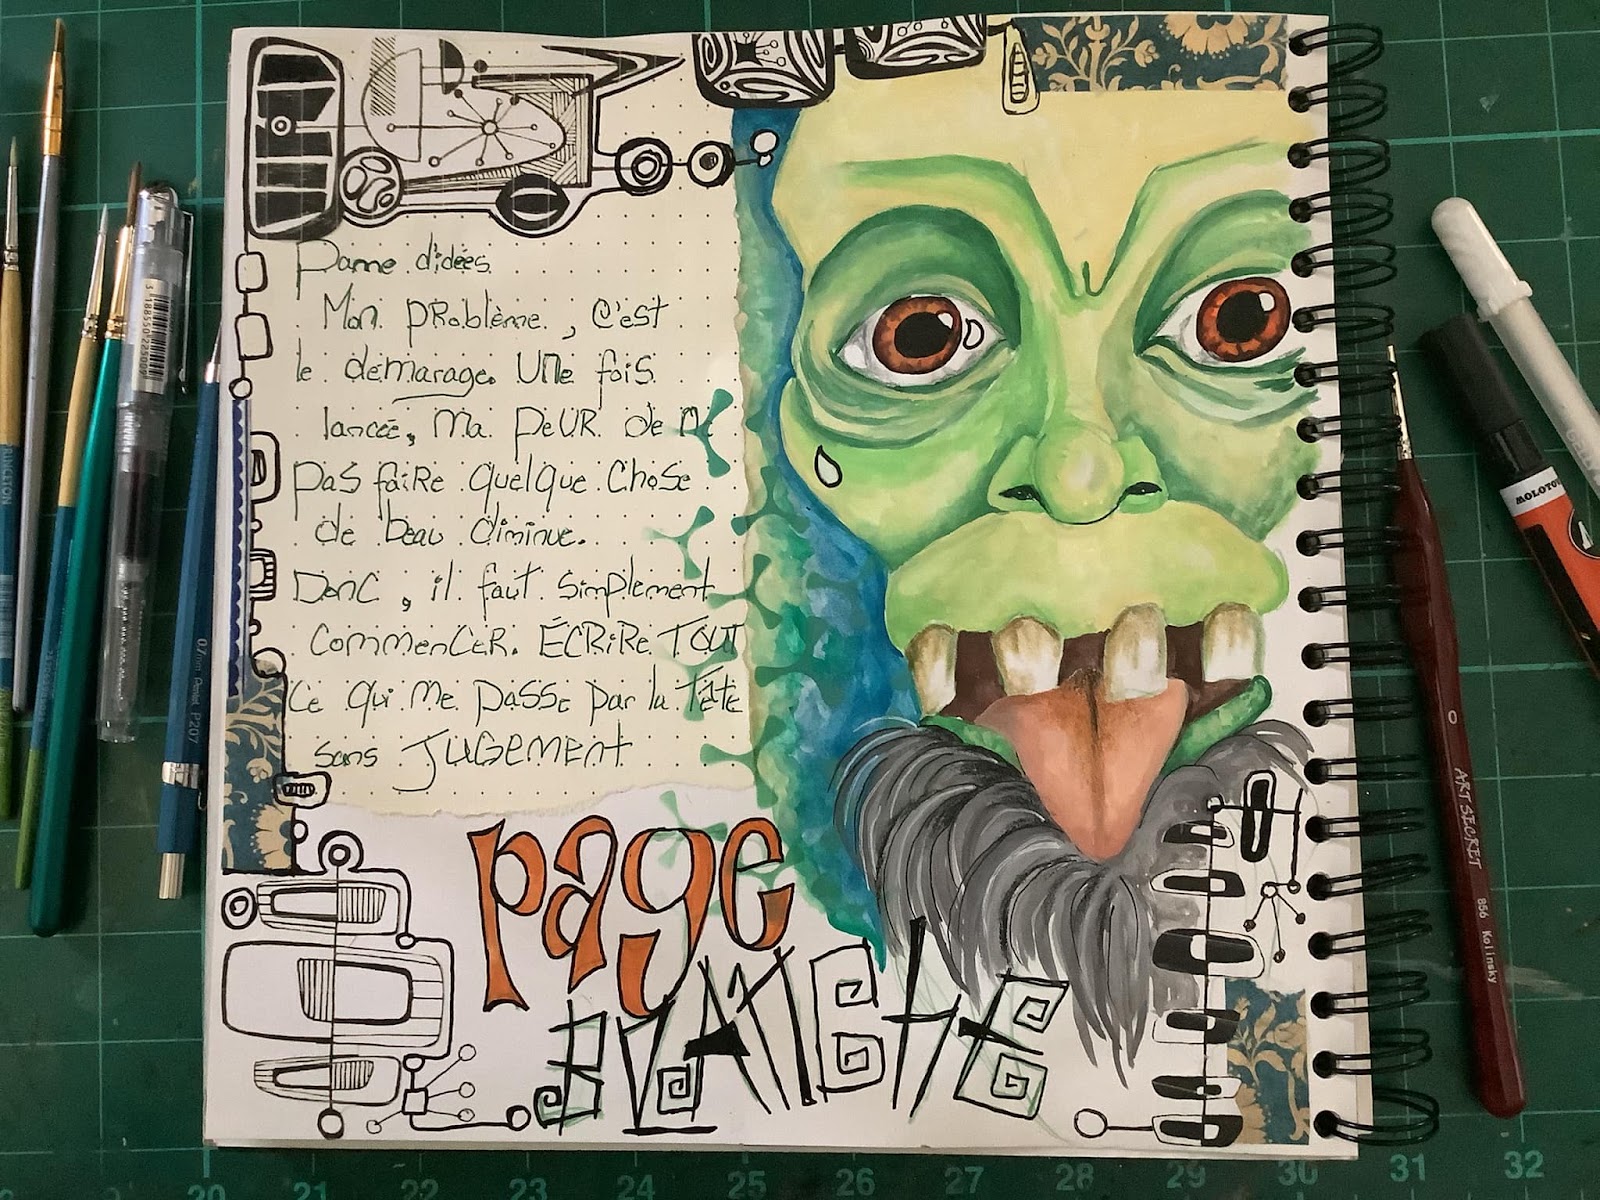 Panne d'idées.
Mon problème, c'est
le démarage. Une fois
lancée, ma peur de ne
pas faire quelque chose
de beau diminue.
Donc, il faut simplement
commencer. ÉCRIRE TOUT
ce qui me passe par la tête
sans JUGEMENT
page
BLANCHE
20 21 22 23 24 25 26 27 28 29 30 31 32
3 185850 225009
0.7mm Pentel P207
MOLOTOW
ART SECRET
856 Kolinsky
0